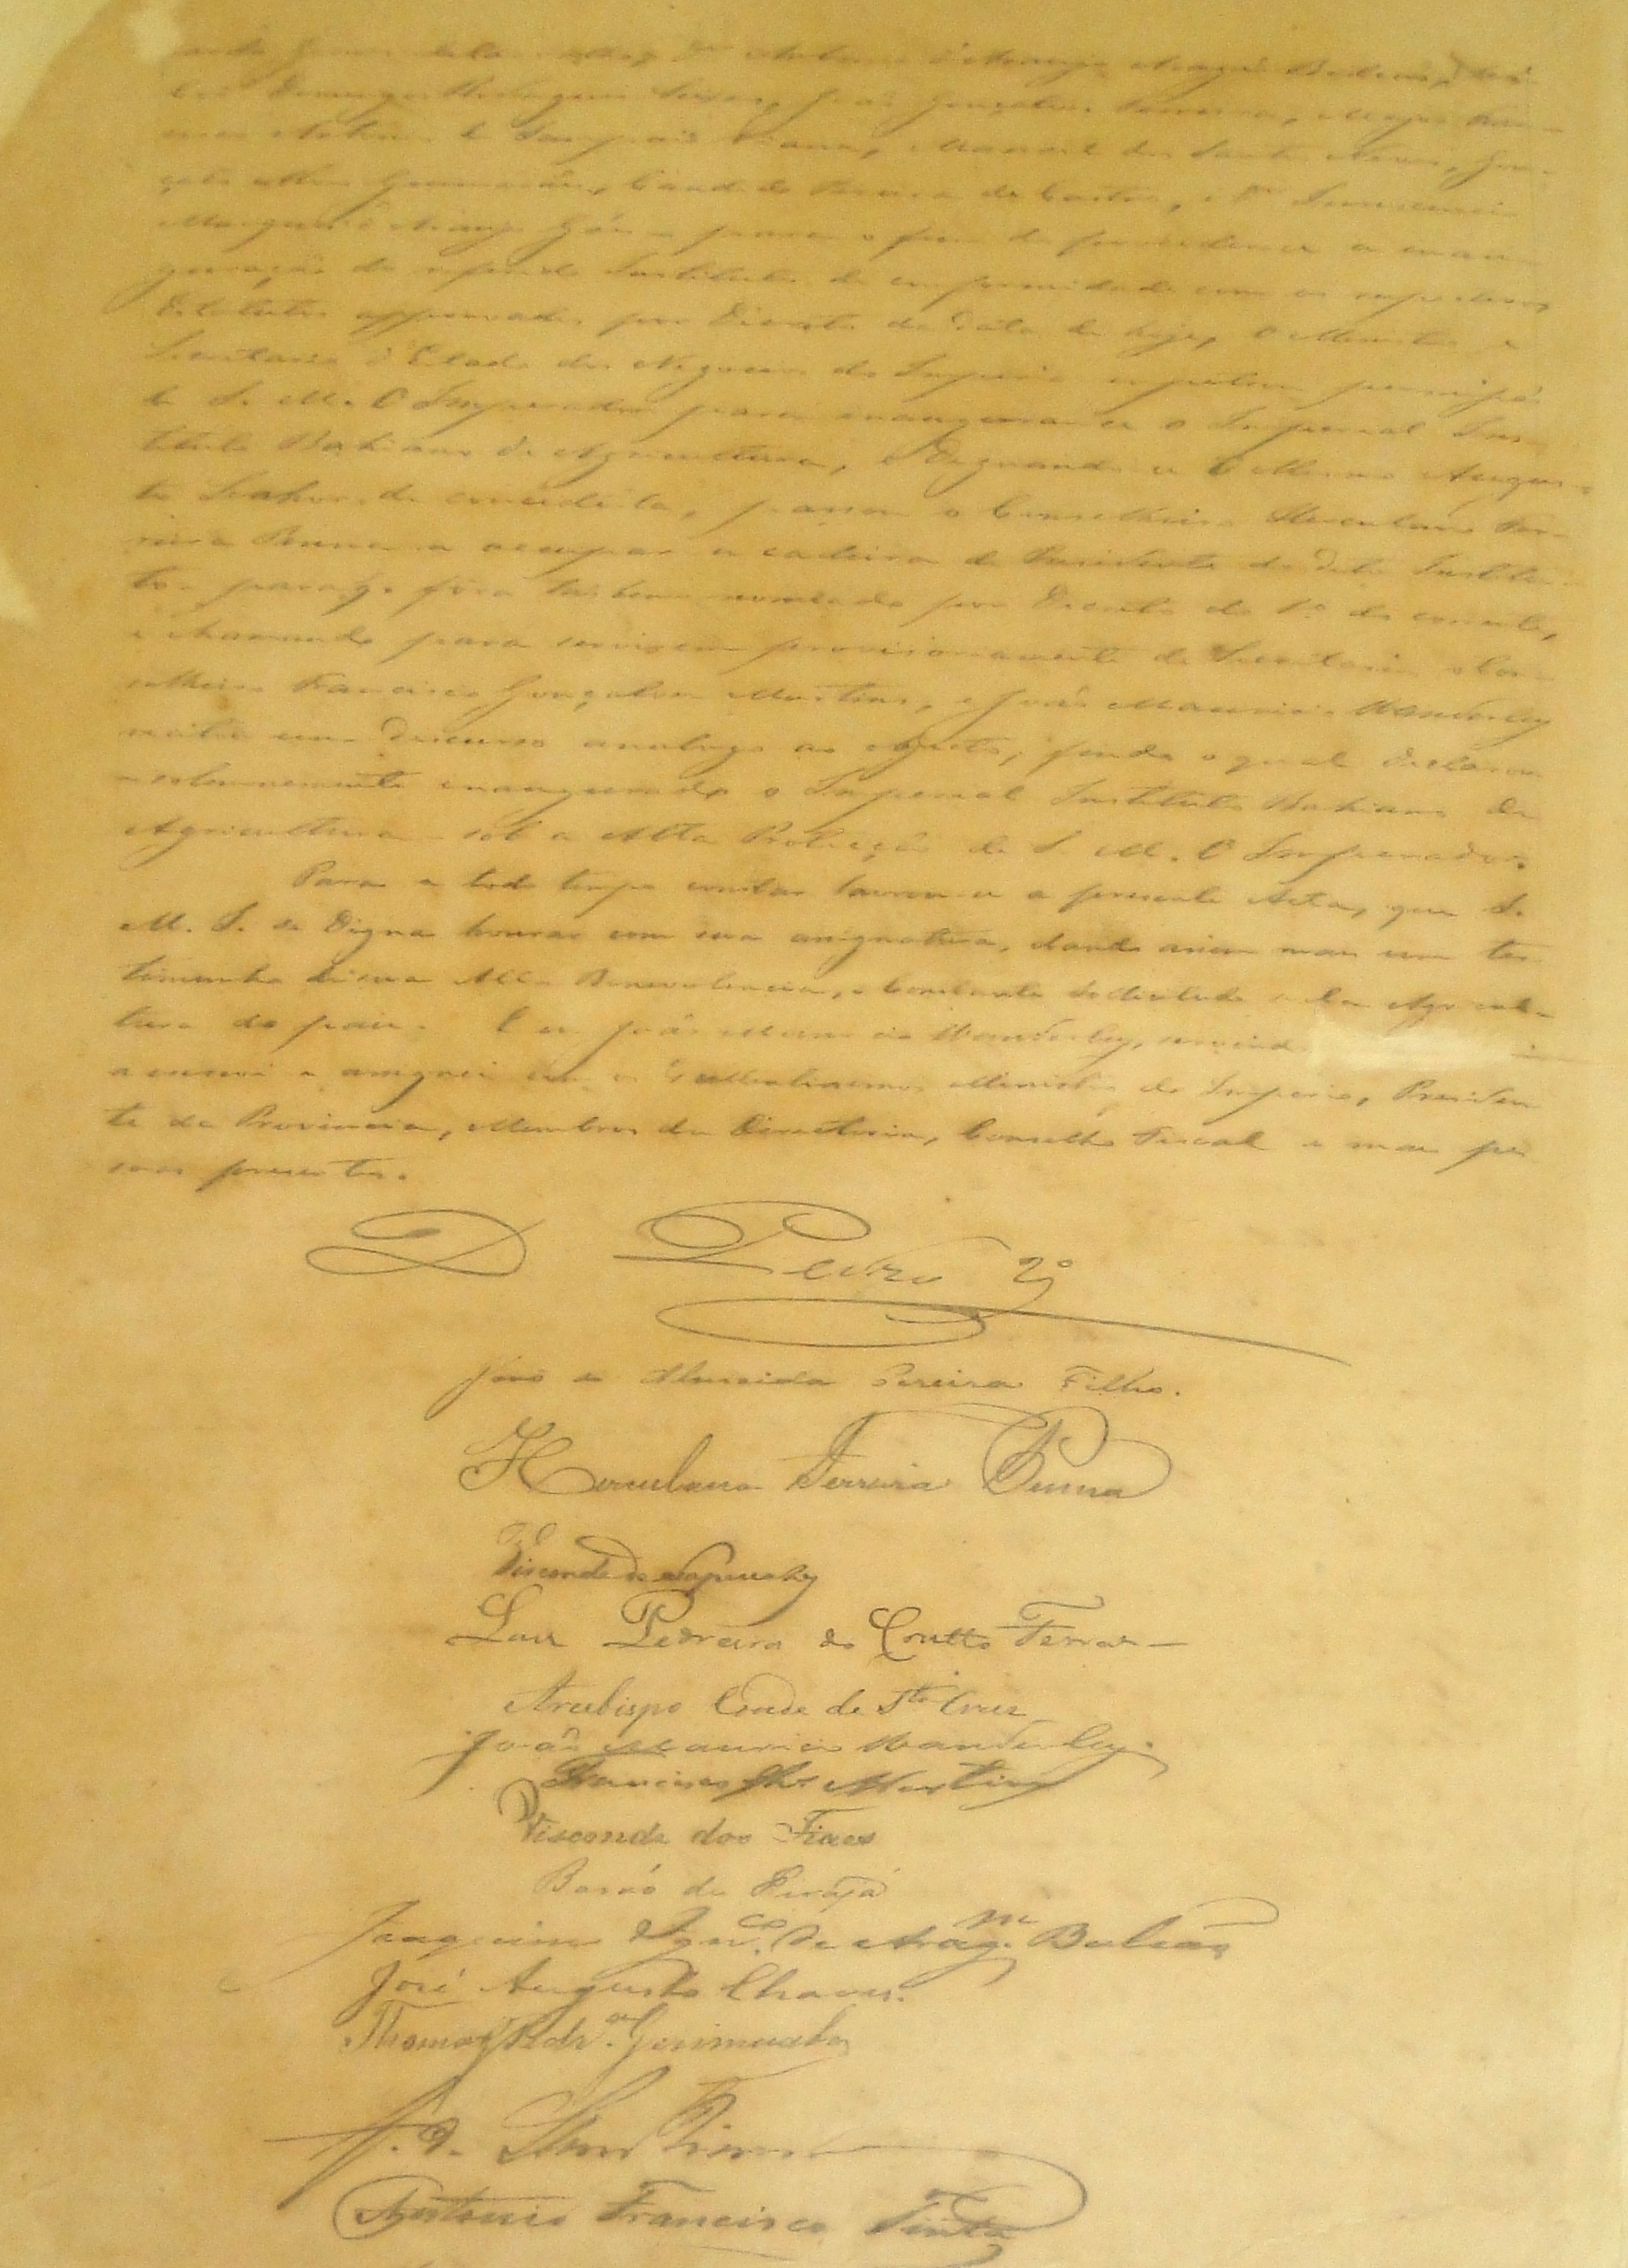 Dr Antonio d'Araujo Aragão Bulcão,
Domingos Rodrigues Seixas, João Gonçalves Ferreira, Major
Antonio de Sampaio Vianna, Manoel dos Santos Neves, Gon-
çalo Alves Guimarães, Candido Pereira de Castro, e Dr Innocencio
Marques d'Araujo Góes para o fim de proceder-se a inau-
guração do referido Instituto de conformidade com os respectivos
Estatutos approvados por Decreto da data de hoje, o Ministro e
Secretario d'Estado dos Negocios do Imperio impetrou permissão
de S. M. O Imperador para inaugurar-se o Imperial Ins-
tituto Bahiano de Agricultura, e Dignando-se O Mesmo Augus-
to Senhor de concedel-a, passou o Conselheiro Herculano Fer-
reira Penna a occupar a cadeira de Presidente do dito Institu-
to para q. fora tambem nomeado por Decreto do 1º do corrente,
e chamando para servirem provisoriamente de Secretarios o Con-
selheiro Francisco Gonçalves Martins, e João Mauricio Wanderley
recitou um discurso analogo ao objecto, findo o qual declarou
solemnemente inaugurado o Imperial Instituto Bahiano de
Agricultura - sob a Alta Protecção de S. M. O Imperador.
Para a todo tempo constar lavrou-se a presente Acta, que S.
M. I. se Digna honrar com sua assignatura, dando assim mais um tes-
timunho de sua Alta Benevolencia, e Constante Solicitude pela Agricul-
tura do paiz. E eu João Mauricio Wanderley, servindo
a escrevi e assignei com os Excellentissimos Ministro do Imperio, Presiden-
te da Provincia, Membros da Directoria, Conselho Fiscal e mais pes-
soas presentes.
D. Pedro 2º
João de Almeida Pereira Filho.
Herculano Ferreira Penna
Visconde de Sapucahy
Luiz Pedreira do Coutto Ferraz
Arcebispo Conde de Sta Cruz
João Mauricio Wanderley.
Francisco Glz. Martins
Visconde dos Fiaes
Barão de Pirajá
Joaquim Ignco. de Aragm. Bulcão
José Augusto Chaves.
Thomas Pedr.
Antonio Francisco Tinta